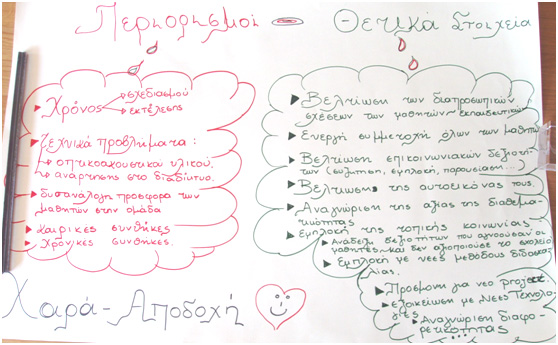 Περιορισμοί - Θετικά Στοιχεία
Χρόνος
σχεδιασμού
εκτέλεσης
Τεχνικά προβλήματα:
οπτικοακουστικού υλικού.
αναρτησης στο διαδίκτυο.
δυσανάλογη προσφορά των
μαθητών στην ομάδα
Καιρικές συνθήκες
Χρονικές συνθηκες.
Βελτίωση των διαπροσωπικών
σχέσεων των μαθητών-εκπαιδευτικών
Ενεργή συμμετοχή όλων των μαθητ
Βελτίωση επικοινωνιακών δεξιοτή-
των (συζήτηση, εμπλοκή, παρουσίαση...)
Βελτίωση της αυτοεικόνας τους.
Αναγνώριση της αξίας της διαθεμα-
τικότητας
Εμπλοκή της τοπικής κοινωνίας
Ανάδειξη δεξιοτήτων που αγνοούσαν οι
μαθητές και δεν αξιοποιούσε το σχολείο
Εμπλοκή με νέες μεθόδους διδασκα-
λίας.
Προσμονή για νέο project
εξοικείωση με Νέες Τεχνολο-
γίες
Αναγνώριση διαφο-
ρετικότητας
Χαρά-Αποδοχή